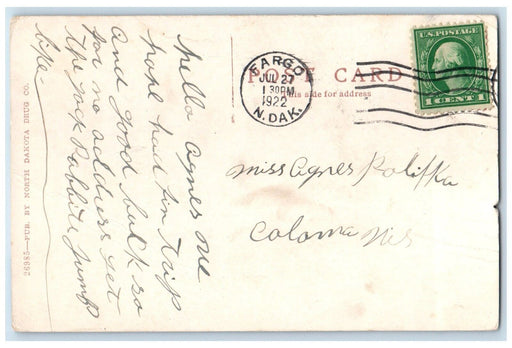 Hello Agnes one
had fin
and good luck so
far no address yet
the Jack Rabbits Jump
26985—PUB. BY NORTH DAKOTA DRUG CO.
POST CARD
This side for address
FARGO
JUL 27
1 30PM
1922
N. DAK.
U.S. POSTAGE
1 CENT 1
Miss Agnes
Coloma Wis